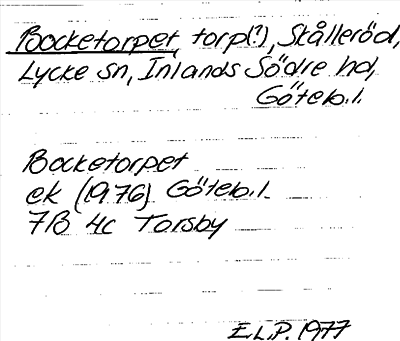 Bocketorpet, torp(!), Skålleröd,
Lycke sn, Inlands Södre hd,
Göteb.l.
Bocketorpet
ek (1976) Göteb.l.
7B 4c Torsby
E.L.P. 1977